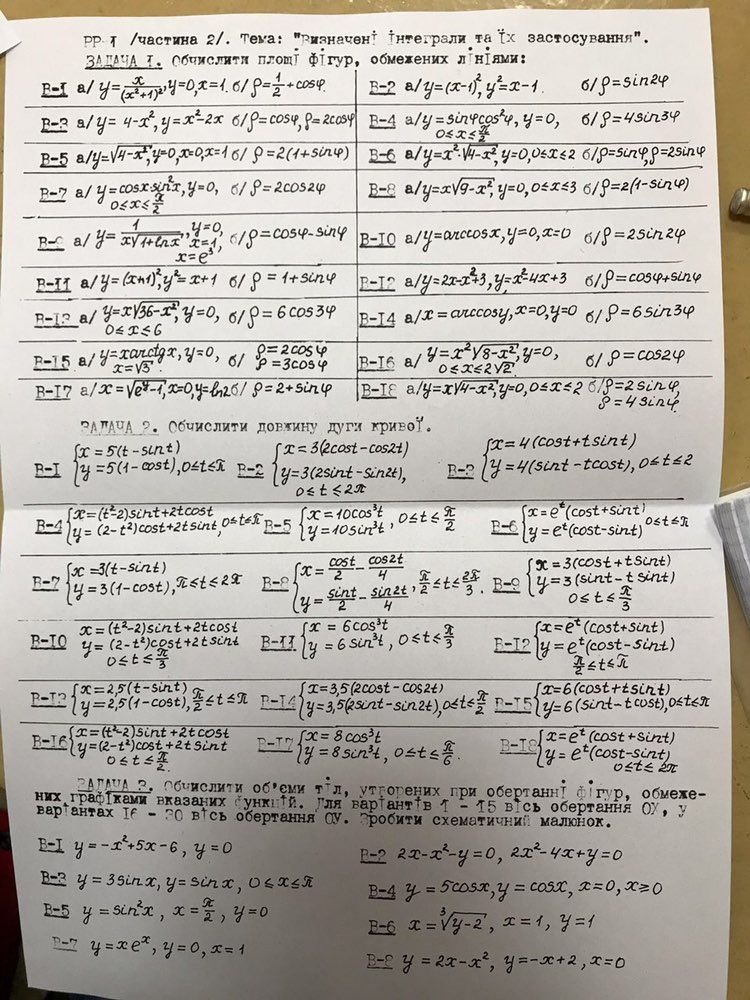 РР-1 /частина 2/. Тема: "Визначені інтеграли та їх застосування".
ЗАДАЧА 1. Обчислити площі фігур, обмежених лініями:
В-1 а/ y = x/(x²+1)², y=0, x=1. б/ ρ = 1/2 + cosφ
В-2 а/ y=(x-1)², y²=x-1 б/ ρ=sin2φ
В-3 а/ y = 4-x², y=x²-2x б/ ρ=cosφ, ρ=2cosφ
В-4 а/ y=sinφcos²φ, y=0, 0≤x≤π/2 б/ ρ=4sin3φ
В-5 а/ y=√(4-x²), y=0, x=0, x=1 б/ ρ=2(1+sinφ)
В-6 а/ y=x²·√(4-x²), y=0, 0≤x≤2 б/ ρ=sinφ, ρ=2sinφ
В-7 а/ y=cosx sin²x, y=0, 0≤x≤π/2 б/ ρ=2cos2φ
В-8 а/ y=x√(9-x²), y=0, 0≤x≤3 б/ ρ=2(1-sinφ)
В-9 а/ y=1/(x√(1+lnx)), y=0, x=1, x=e³, б/ ρ=cosφ-sinφ
В-10 а/ y=arccosx, y=0, x=0 б/ ρ=2sin2φ
В-11 а/ y=(x+1)², y²=x+1 б/ ρ=1+sinφ
В-12 а/ y=2x-x²+3, y=x²-4x+3 б/ ρ=cosφ+sinφ
В-13 а/ y=x√(36-x²), y=0, 0≤x≤6 б/ ρ=6cos3φ
В-14 а/ x=arccosy, x=0, y=0 б/ ρ=6sin3φ
В-15 а/ y=xarctgx, y=0, x=√3 б/ ρ=2cosφ ρ=3cosφ
В-16 а/ y=x²√(8-x²), y=0, 0≤x≤2√2 б/ ρ=cos2φ
В-17 а/ x=√(e^y-1), x=0, y=ln2 б/ ρ=2+sinφ
В-18 а/ y=x√(4-x²), y=0, 0≤x≤2 б/ ρ=2sinφ, ρ=4sinφ.
ЗАДАЧА 2. Обчислити довжину дуги кривої.
В-1 {x=5(t-sint) y=5(1-cost), 0≤t≤π
В-2 {x=3(2cost-cos2t) y=3(2sint-sin2t), 0≤t≤2π
В-3 {x=4(cost+tsint) y=4(sint-tcost), 0≤t≤2
В-4 {x=(t²-2)sint+2tcost y=(2-t²)cost+2tsint, 0≤t≤π
В-5 {x=10cos³t y=10sin³t, 0≤t≤π/2
В-6 {x=e^t(cost+sint) y=e^t(cost-sint) 0≤t≤π
В-7 {x=3(t-sint) y=3(1-cost), π≤t≤2π
В-8 {x=cost/2-cos2t/4 y=sint/2-sin2t/4, π/2≤t≤2π/3.
В-9 {x=3(cost+tsint) y=3(sint-tsint) 0≤t≤π/3
В-10 x=(t²-2)sint+2tcost y=(2-t²)cost+2tsint 0≤t≤π/3
В-11 {x=6cos³t y=6sin³t, 0≤t≤π/3
В-12 {x=e^t(cost+sint) y=e^t(cost-sint) π/2≤t≤π
В-13 {x=2,5(t-sint) y=2,5(1-cost), π/2≤t≤π
В-14 {x=3,5(2cost-cos2t) y=3,5(2sint-sin2t), 0≤t≤π/2
В-15 {x=6(cost+tsint) y=6(sint-tcost), 0≤t≤π
В-16 {x=(t²-2)sint+2tcost y=(2-t²)cost+2tsint 0≤t≤π/2
В-17 {x=8cos³t y=8sin³t, 0≤t≤π/6.
В-18 {x=e^t(cost+sint) y=e^t(cost-sint) 0≤t≤2π
ЗАДАЧА 3. Обчислити об'єми тіл, утворених при обертанні фігур, обмеже-
них графіками вказаних функцій. Для варіантів 1 - 15 вісь обертання ОХ, у
варіантах 16 - 30 вісь обертання ОУ. Зробити схематичний малюнок.
В-1 y=-x²+5x-6, y=0
В-2 2x-x²-y=0, 2x²-4x+y=0
В-3 y=3sinx, y=sinx, 0≤x≤π
В-4 y=5cosx, y=cosx, x=0, x≥0
В-5 y=sin²x, x=π/2, y=0
В-6 x=∛(y-2), x=1, y=1
В-7 y=xe^x, y=0, x=1
В-8 y=2x-x², y=-x+2, x=0